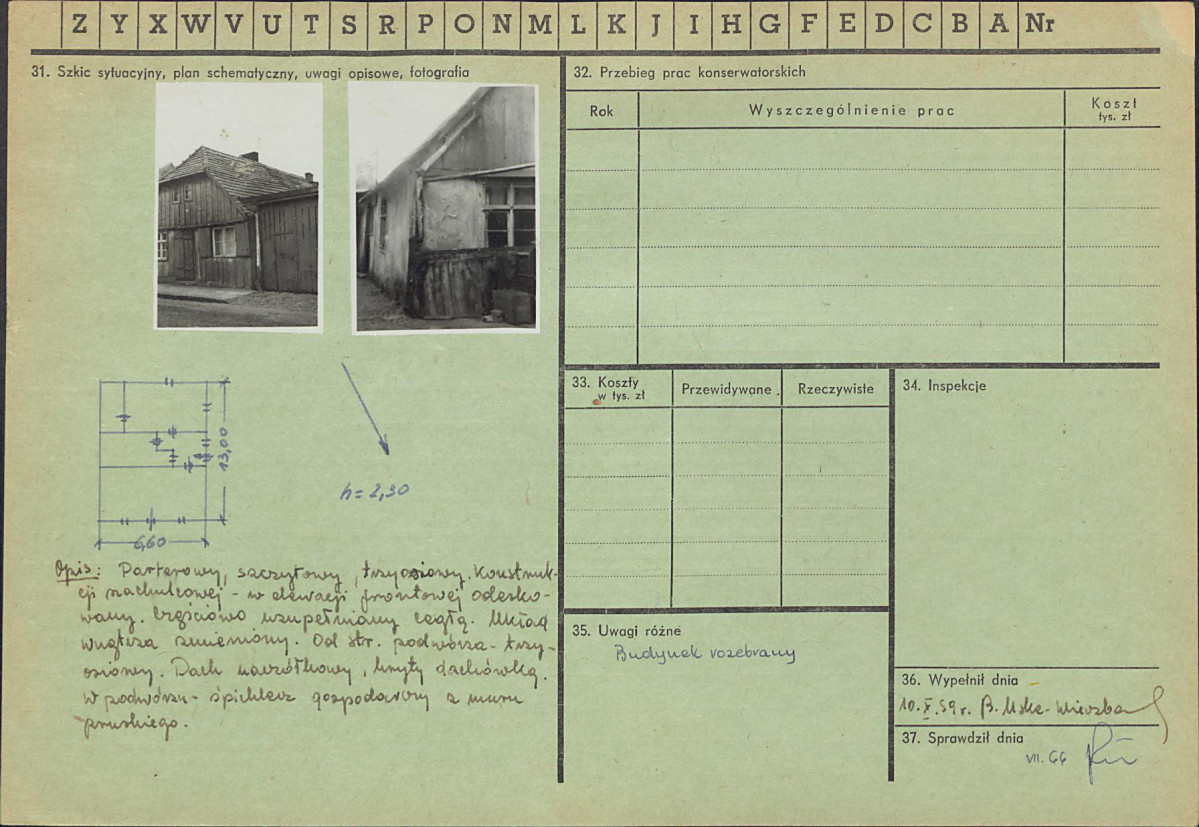 Z Y X W V U T S R P O N M L K J I H G F E D C B A Nr
31. Szkic sytuacyjny, plan schematyczny, uwagi opisowe, fotografia
13,00
6,60
h = 2,30
Opis: Parterowy, szczytowy, trzyosiowy. Konstruk-
cji szachulcowej - w elewacji frontowej odesko-
wany. Częściowo uzupełniany cegłą. Układ
wnętrza zmieniony. Od str. podwórza - trzy-
osiowy. Dach naczółkowy, kryty dachówką.
W podwórzu - spichlerz gospodarczy z muru
pruskiego.
32. Przebieg prac konserwatorskich
Rok
Wyszczególnienie prac
Koszt
tys. zł
33. Koszty
w tys. zł
Przewidywane
Rzeczywiste
34. Inspekcje
35. Uwagi różne
Budynek rozebrany
36. Wypełnił dnia
10.X.59 r. B.
37. Sprawdził dnia
VII. 66